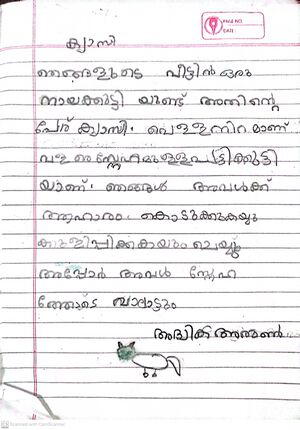 PAGE NO.
DATE:
ക്വാസി
ഞങ്ങളുടെ വീട്ടിൻ ഒരു
നായക്കുട്ടി യുണ്ട് അതിന്റെ
പേര് ക്വാസി. വെള്ളനിറ മാണ്
വള രെ സ്നേഹമുള്ള പട്ടിക്കുട്ടി
യാണ്. ഞങ്ങൾ അവൾക്ക്
ആഹാരം കൊടുക്കുകയും
കുളിപ്പിക്കുകയും ചെയ്യും
അപ്പോർ അവൾ സ്നേഹ
ത്തോടെ വാലാട്ടും
അദ്വിക അരുൺ
Scanned with CamScanner